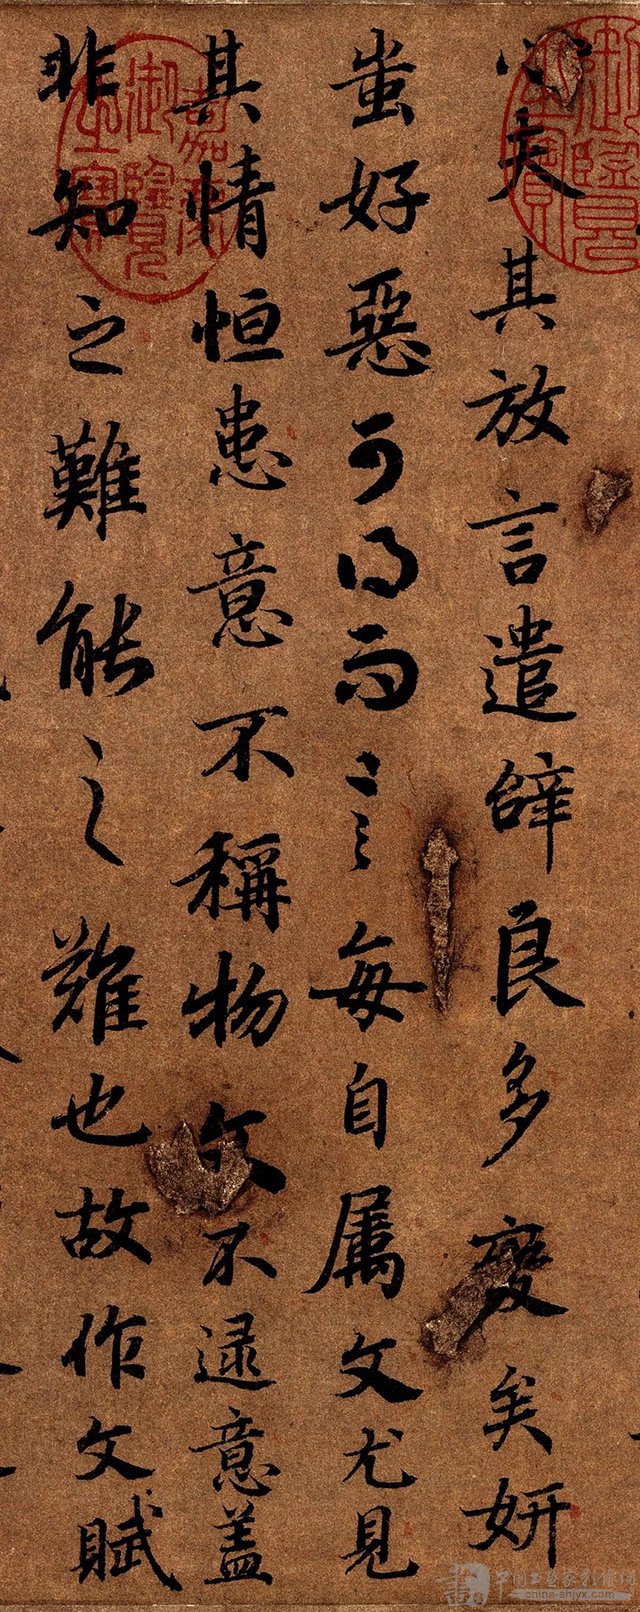 心夫其放言遣辭良多變矣妍
蚩好惡可得而言每自屬文尤見
其情恒患意不稱物文不逮意蓋
非知之難能之難也故作文賦
嘉慶御覽之寶
china-shjyx.com